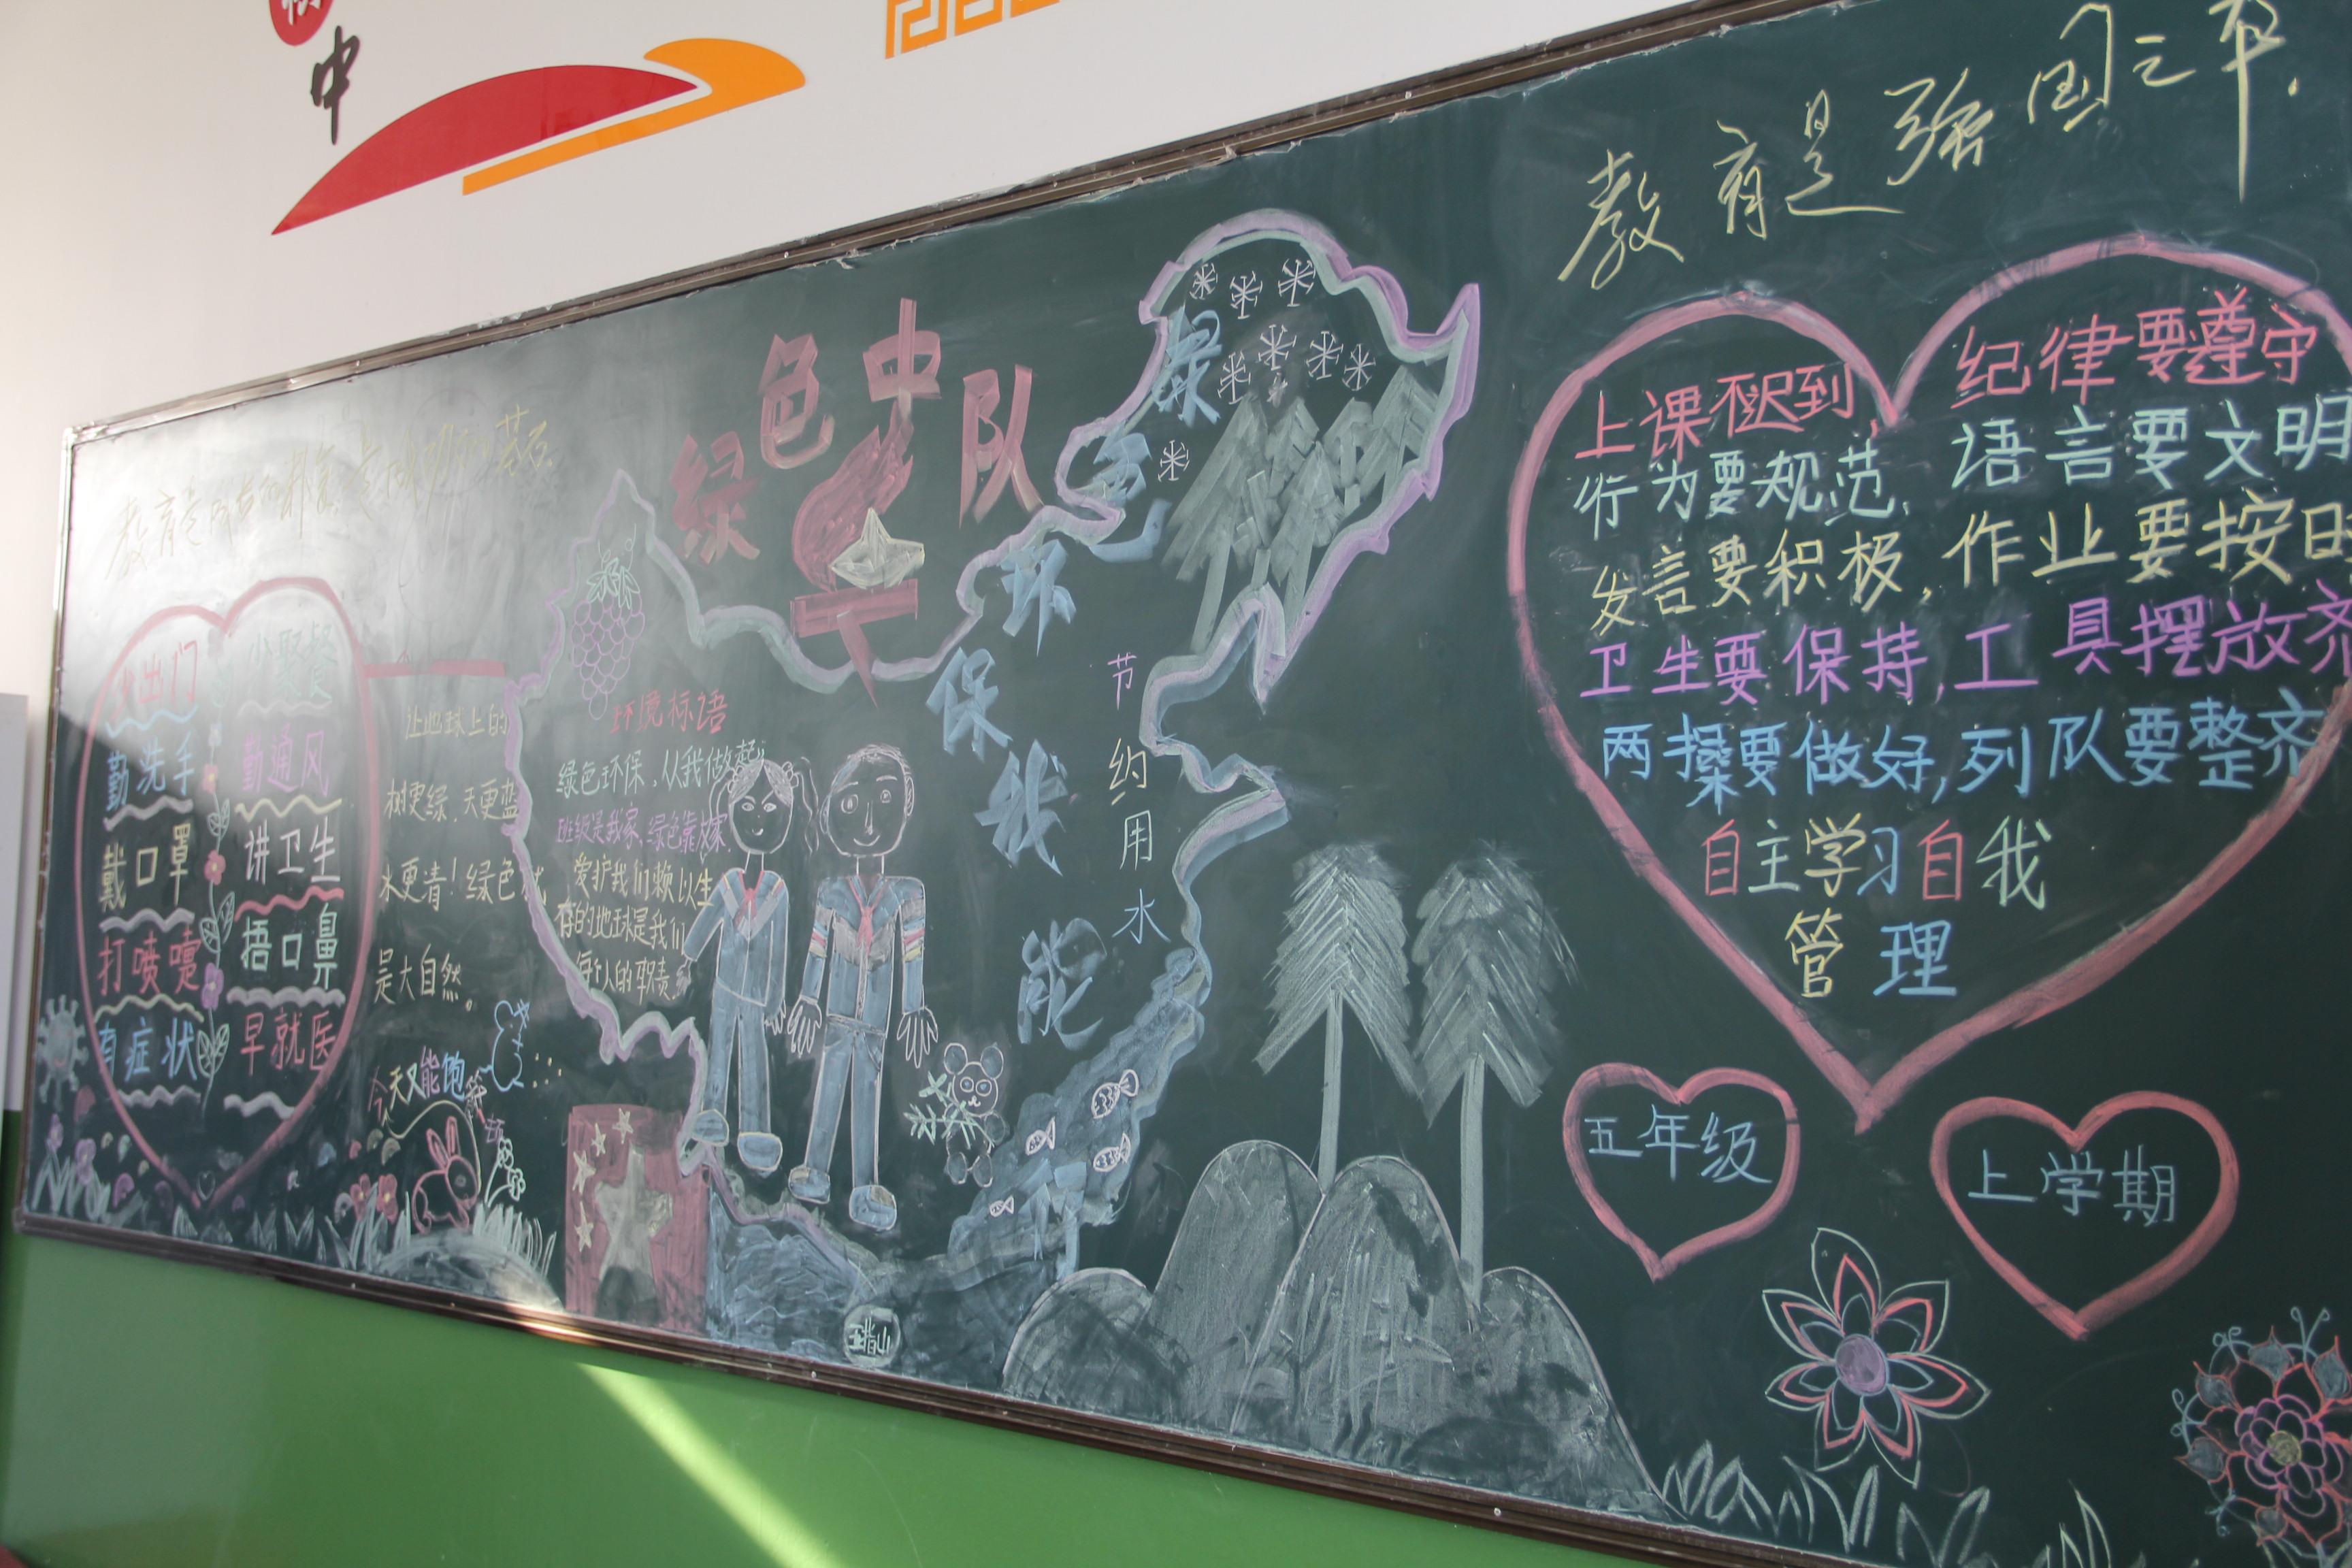 中
教育是强国之本.
绿色中队
绿色环保我能
节约用水
少出门 少聚餐
勤洗手 勤通风
戴口罩 讲卫生
打喷嚏 捂口鼻
有症状 早就医
让地球上的
树更绿.天更蓝
水更清!绿色
是大自然。
今天又能饱
环境标语
绿色环保,从我做起
班级是我家,绿色靠大家.
爱护我们赖以生
存的地球是我们
每个人的职责
上课不迟到, 纪律要遵守
行为要规范, 语言要文明
发言要积极,作业要按时
卫生要保持,工具摆放齐
两操要做好,列队要整齐
自主学习自我
管理
五年级
上学期
五指山